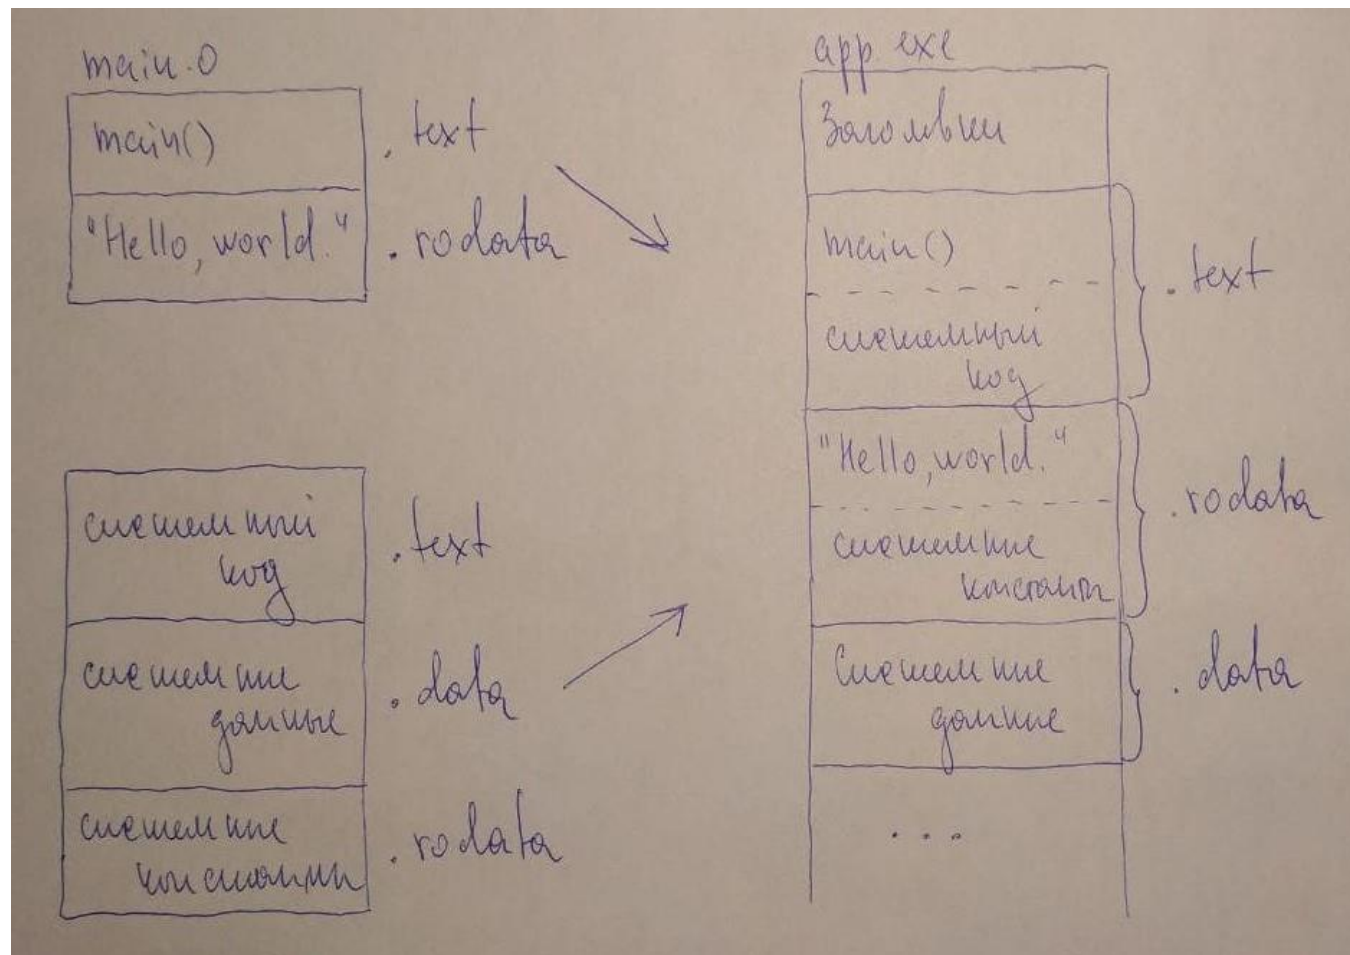 main.o
main()
.text
"Hello, world."
.rodata
системный
код
.text
системные
данные
.data
системные
константы
.rodata
app.exe
Заголовки
main()
системный
код
.text
"Hello, world."
системные
константы
.rodata
Системные
данные
.data
...